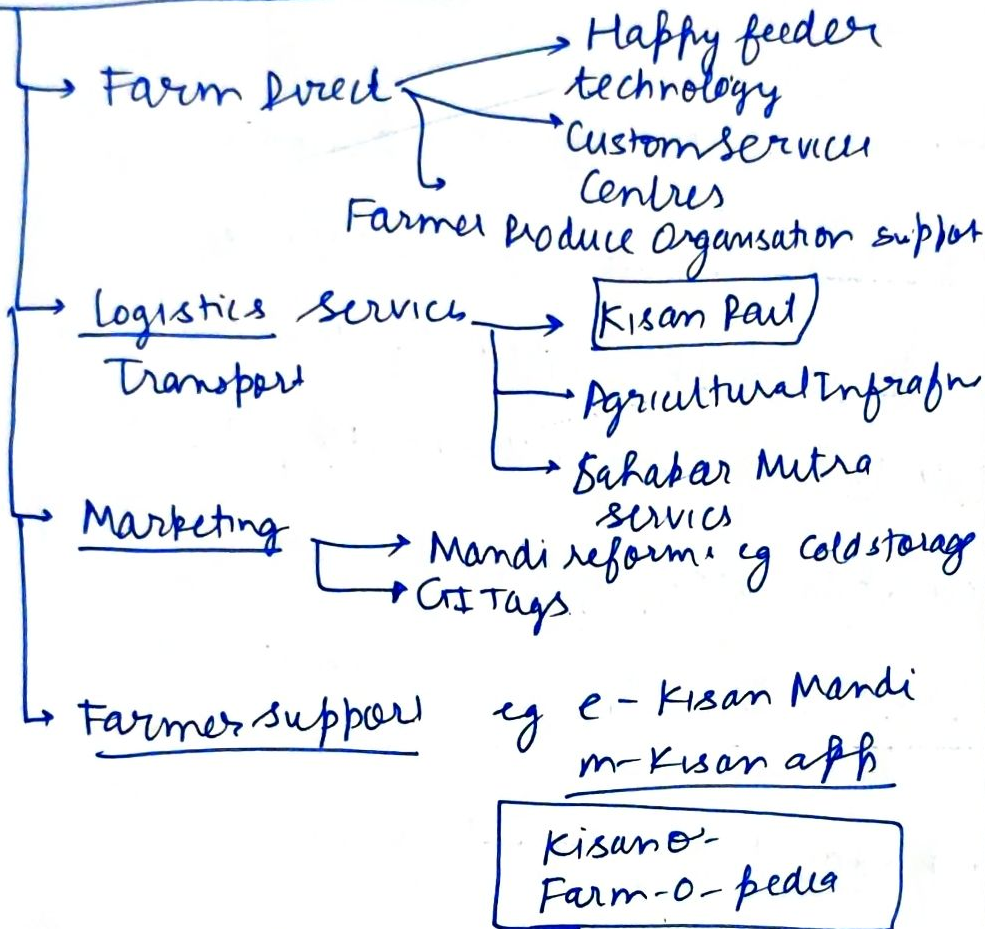 Farm Direct
Happy feeder
technology
Custom Service
Centres
Farmer Produce Organisation support
Logistics Services
Kisan Rail
Transport
Agricultural Infra fn
Sahakar Mitra
services
Marketing
Mandi reforms eg cold storage
GI Tags
Farmer support eg e-Kisan Mandi
m-Kisan app
Kisan o-
Farm-o-pedia